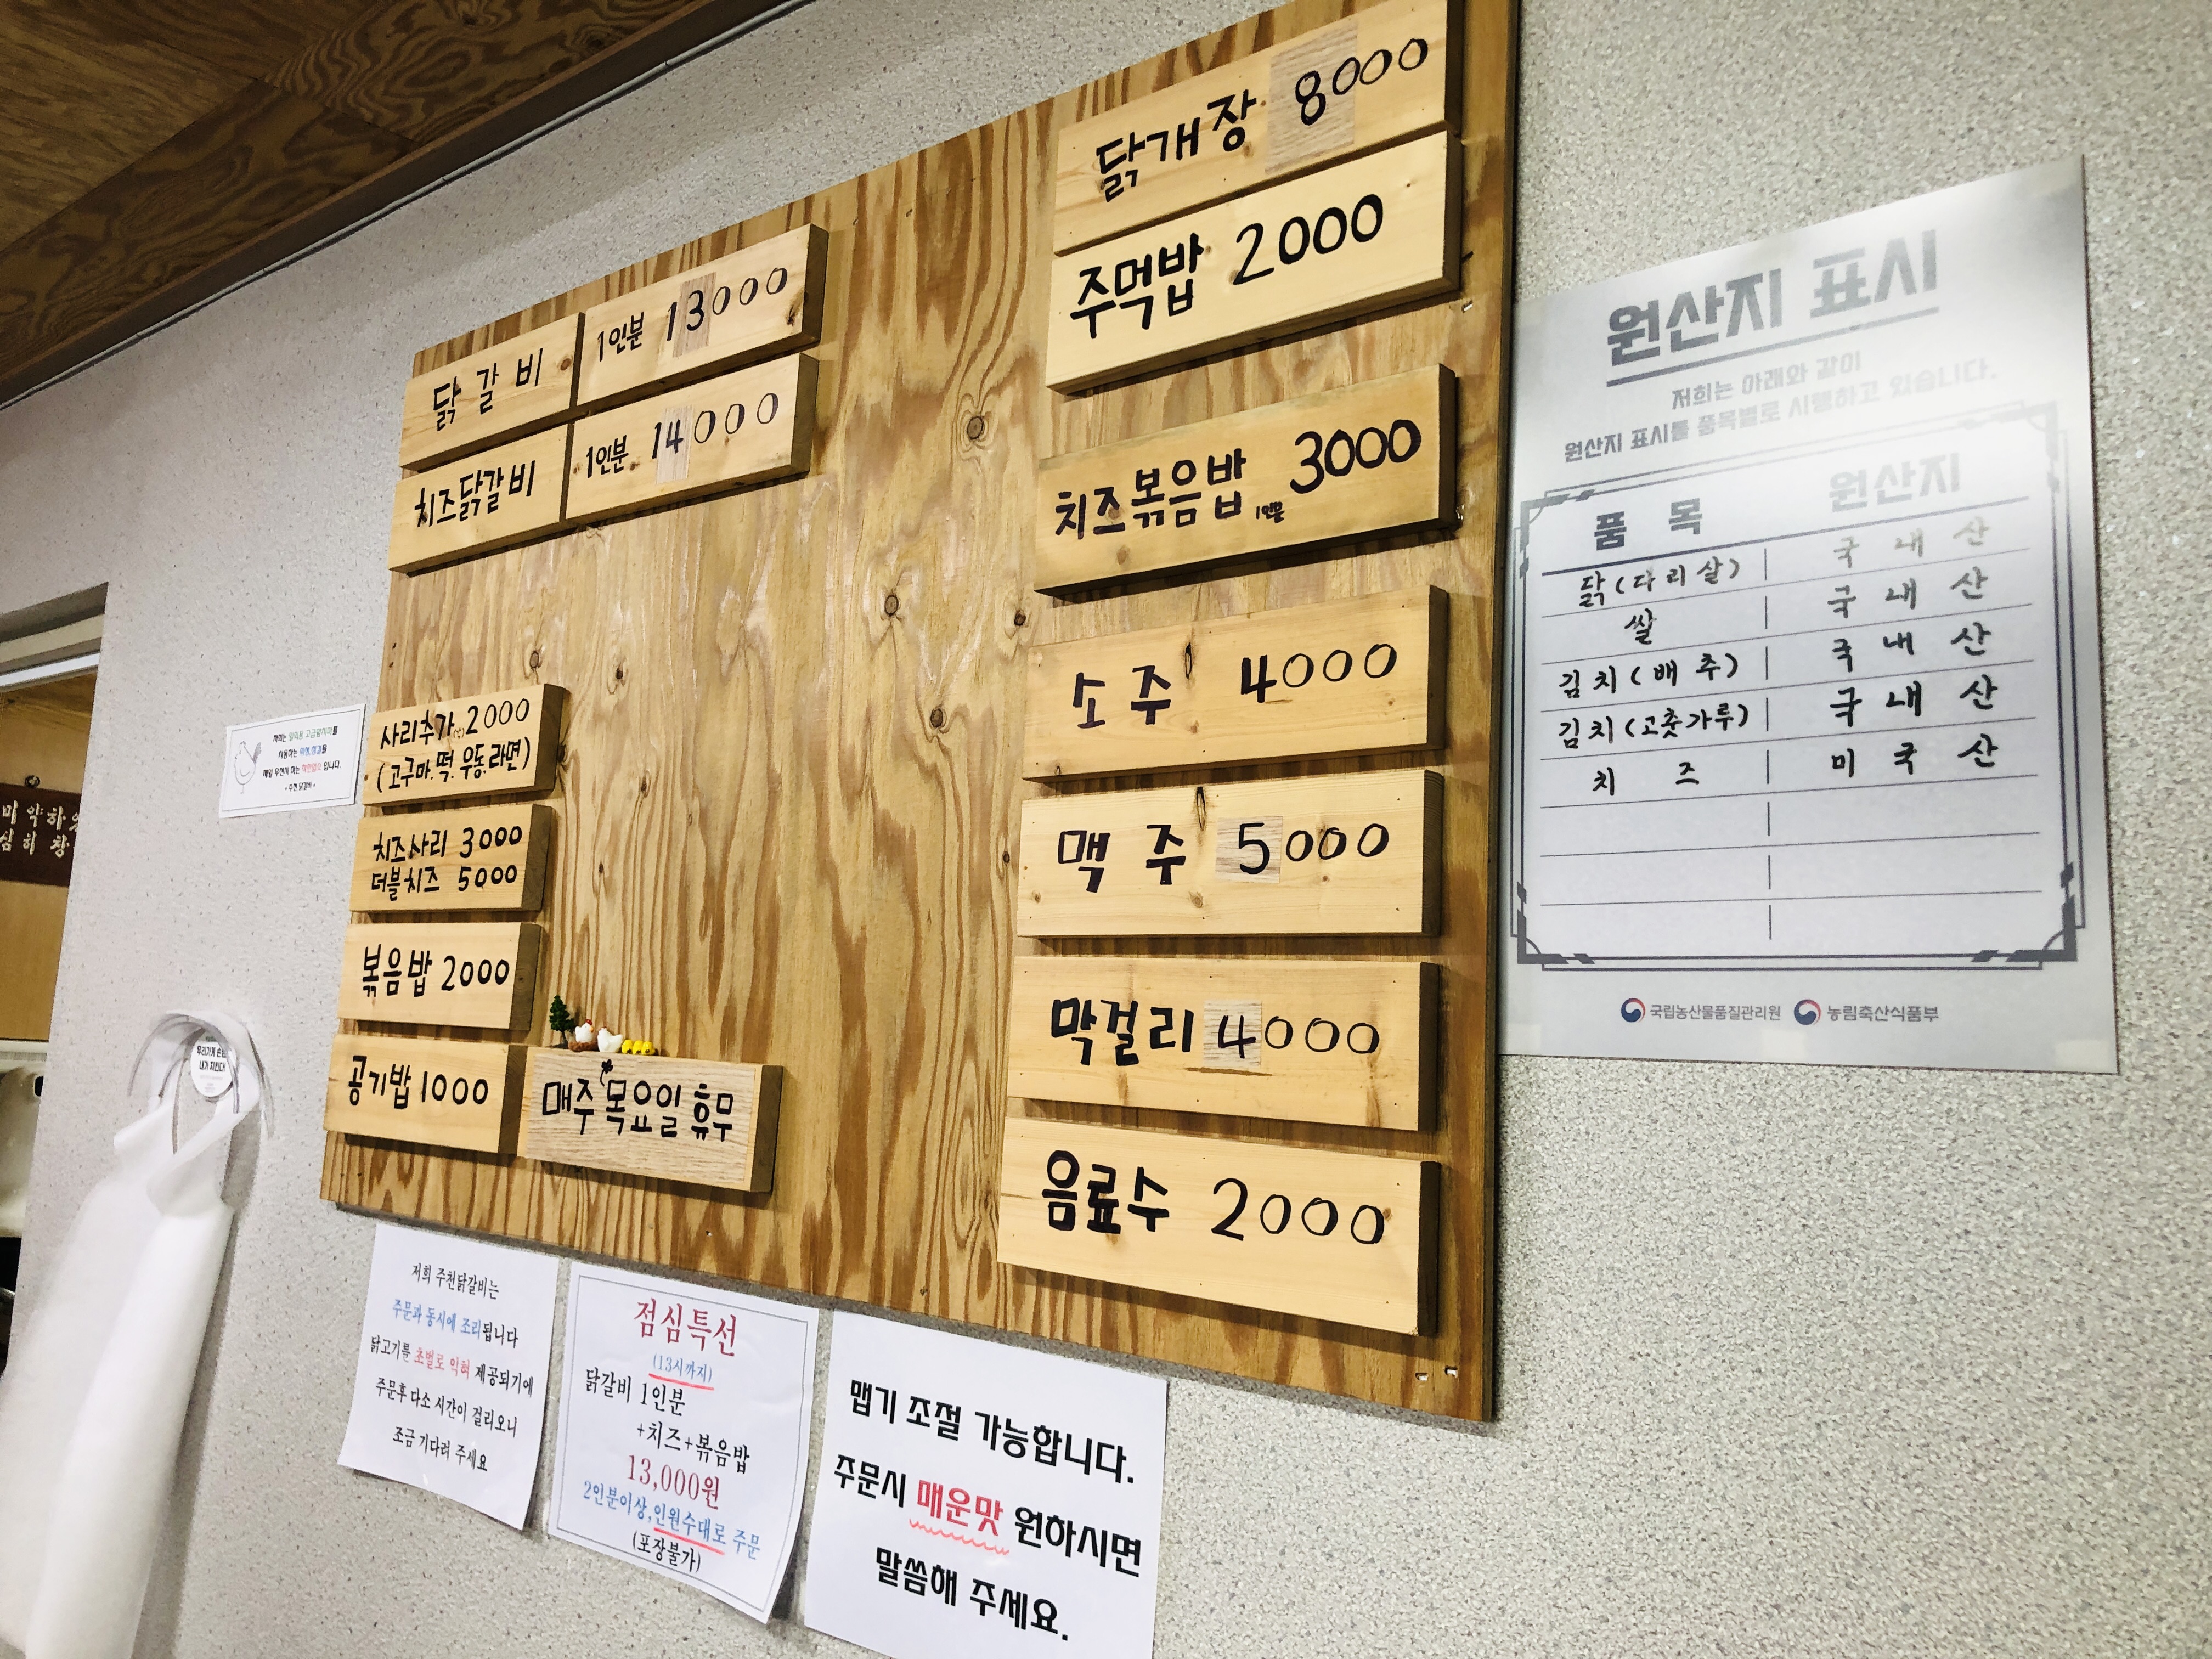 닭갈비 1인분 13000
치즈닭갈비 1인분 14000
사리추가 2000
(고구마.떡.우동.라면)
치즈사리 3000
더블치즈 5000
볶음밥 2000
공기밥 1000
매주 목요일 휴무
닭개장 8000
주먹밥 2000
치즈볶음밥 1인분 3000
소주 4000
맥주 5000
막걸리 4000
음료수 2000
원산지 표시
저희는 아래와 같이
원산지 표시를 품목별로 시행하고 있습니다.
품목 원산지
닭(다리살) 국내산
쌀 국내산
김치(배추) 국내산
김치(고춧가루) 국내산
치즈 미국산
국립농산물품질관리원 농림축산식품부
저희 주천닭갈비는
주문과 동시에 조리됩니다
닭고기를 초벌로 익혀 제공되기에
주문후 다소 시간이 걸리오니
조금 기다려 주세요
점심특선
(13시까지)
닭갈비 1인분
+치즈+볶음밥
13,000원
2인분이상,인원수대로 주문
(포장불가)
맵기 조절 가능합니다.
주문시 매운맛 원하시면
말씀해 주세요.
우리가게 손님
내가 지킨다!